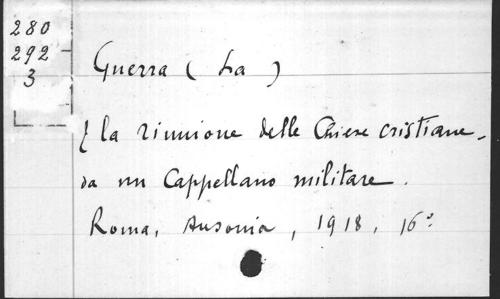 280
292
3
Guerra (La)
e la riunione delle Chiese cristiane.
da un Cappellano militare.
Roma, Ausonia, 1918, 16°.